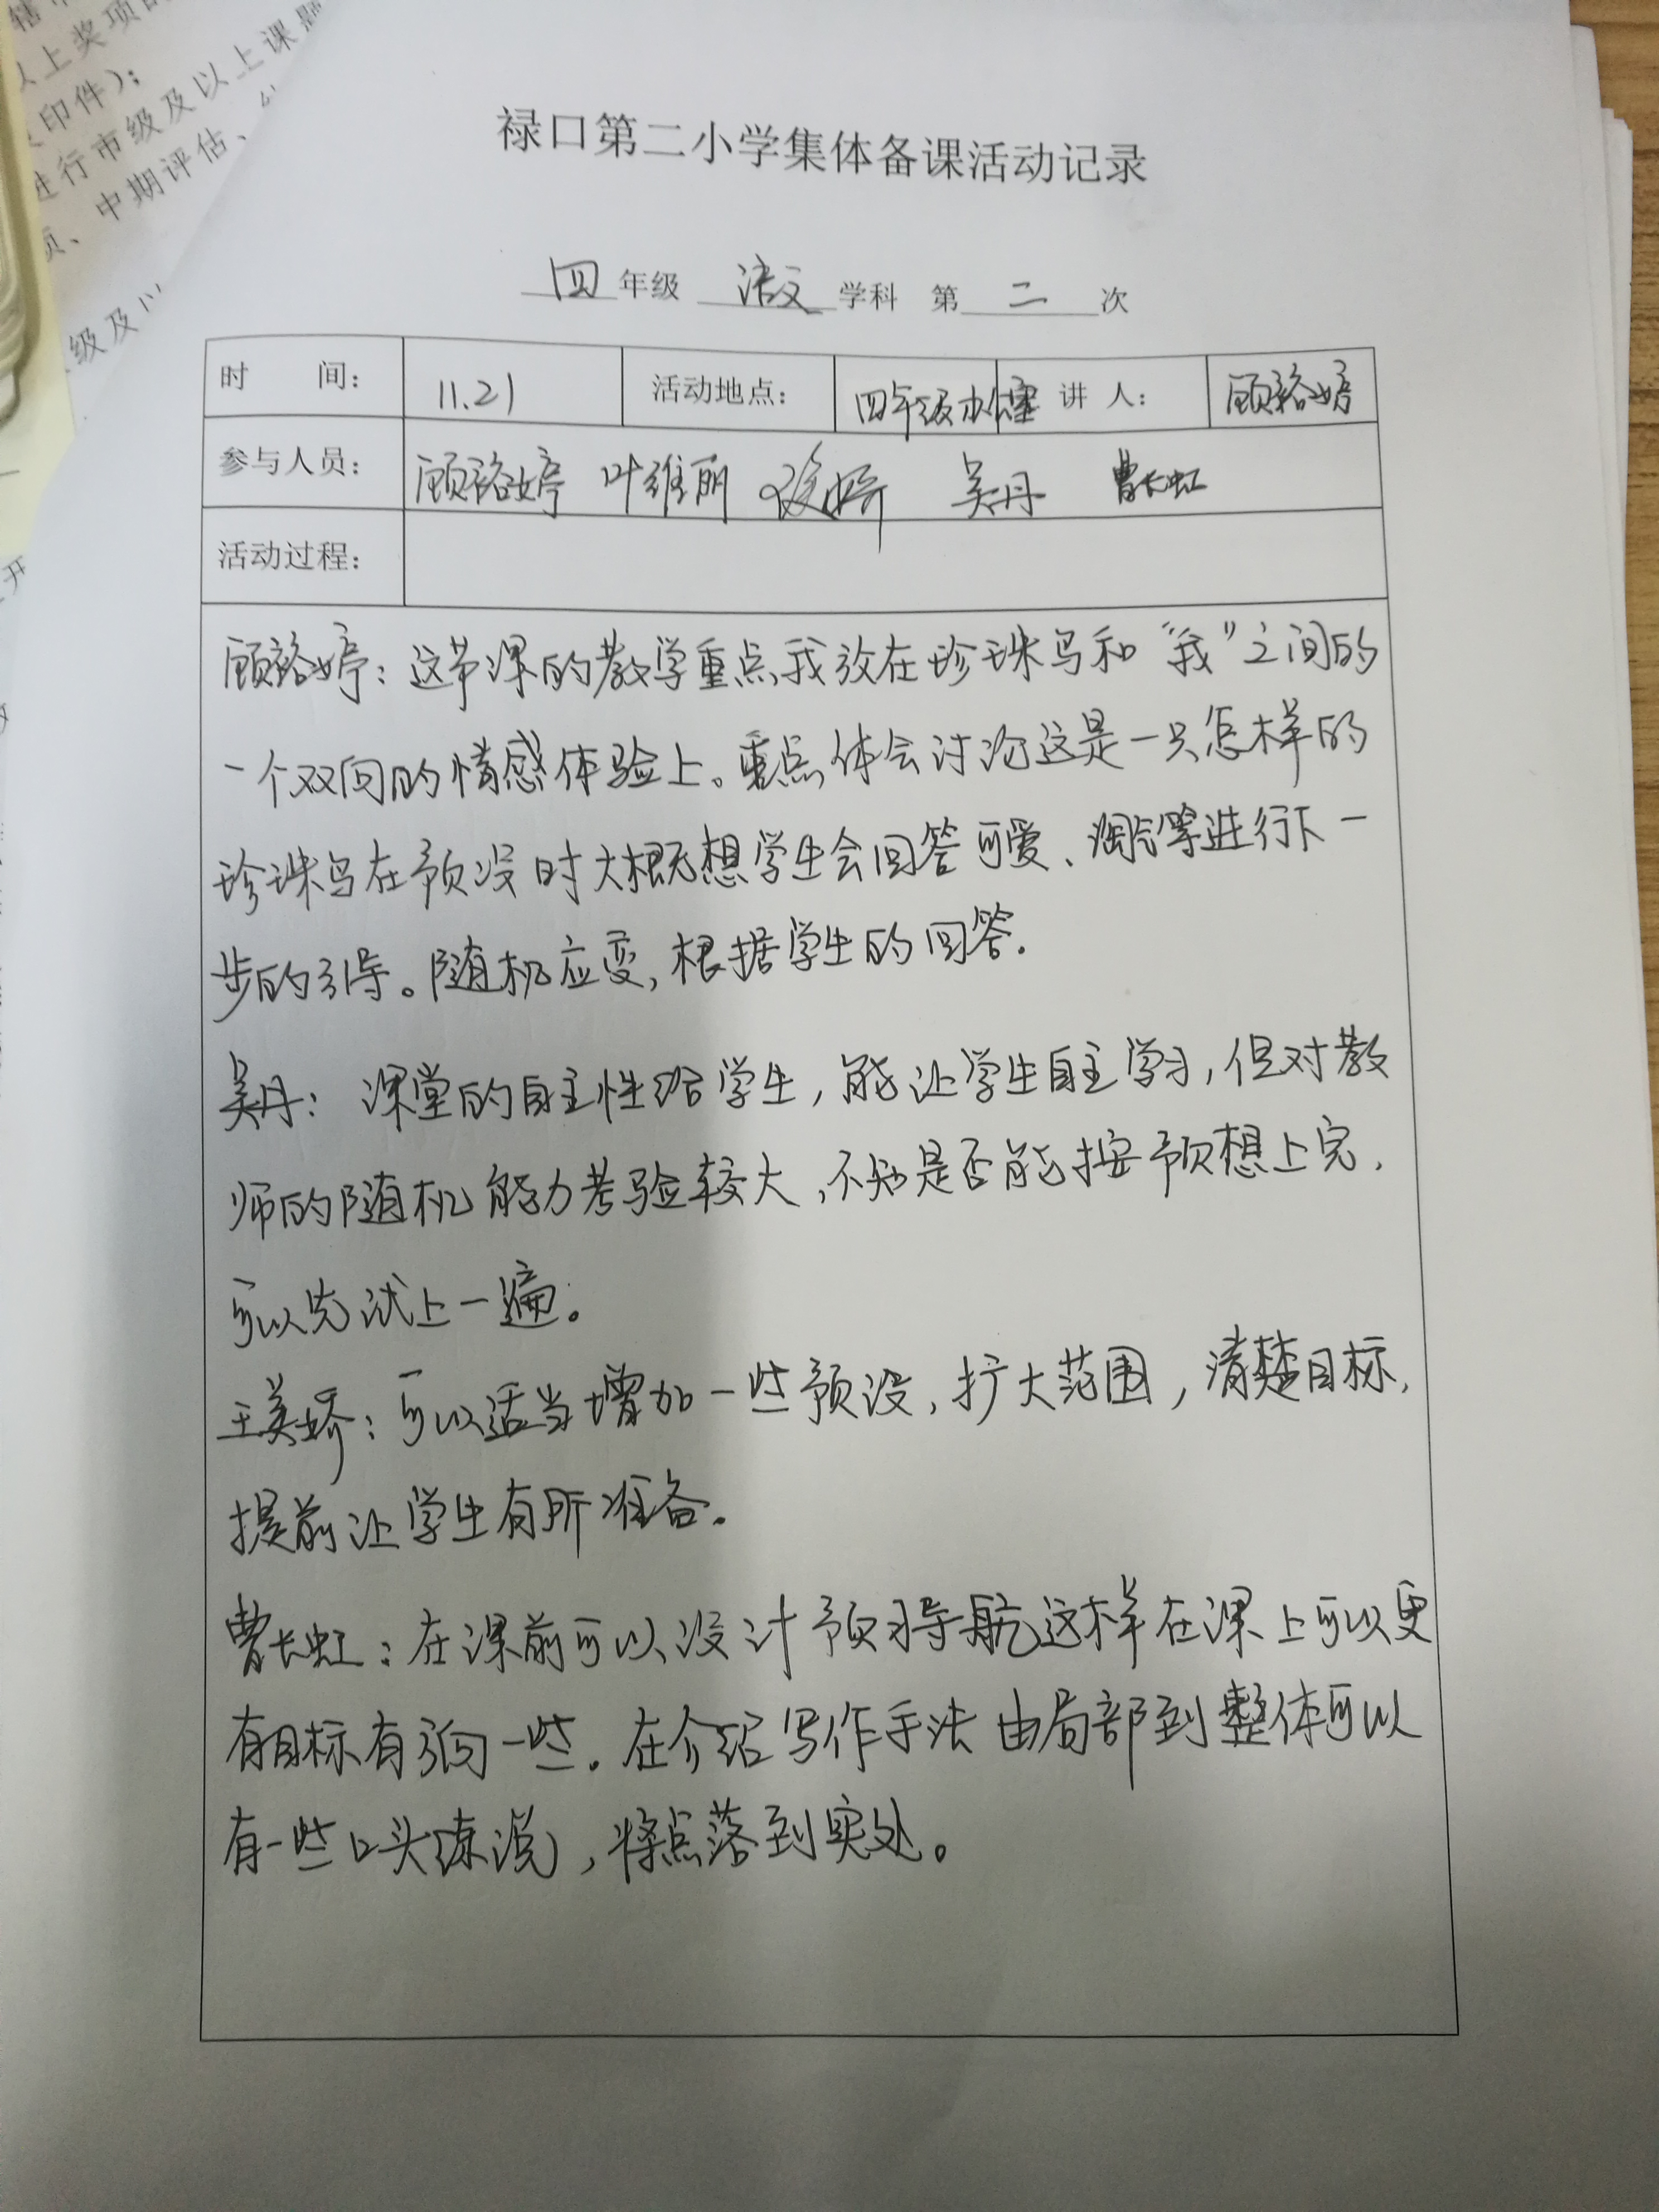 辖
以上奖项
印件）；
进行市级及以上课题
页、中期评估、
级及以
开
禄口第二小学集体备课活动记录
四 年级 语文 学科 第 二 次
时 间： 11.21 活动地点： 四年级办 讲 人： 顾裕婷
参与人员： 顾裕婷 叶维丽 吴丹 曹长虹
活动过程：
顾裕婷：这节课的教学重点我放在珍珠鸟和“我”之间的
一个双向的情感体验上。重点体会讨论这是一只怎样的
珍珠鸟在预设时大概想学生会回答可爱、淘气等进行下一
步的引导。随机应变，根据学生的回答.
吴丹：课堂的自主性给学生，能让学生自主学习，但对教
师的随机能力考验较大，不知是否能按预想上完，
可以先试上一遍。
王美娇：可以适当增加一些预设，扩大范围，清楚目标，
提前让学生有所准备。
曹长虹：在课前可以设计预习导航这样在课上可以更
有目标有方向一些.在介绍写作手法由局部到整体可以
有一些口头练说，将点落到实处。